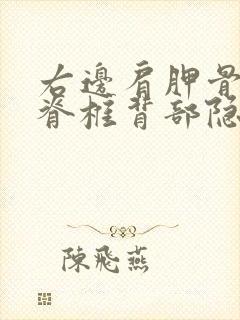 右邊肩胛骨
脊椎背部隐
陳飛燕